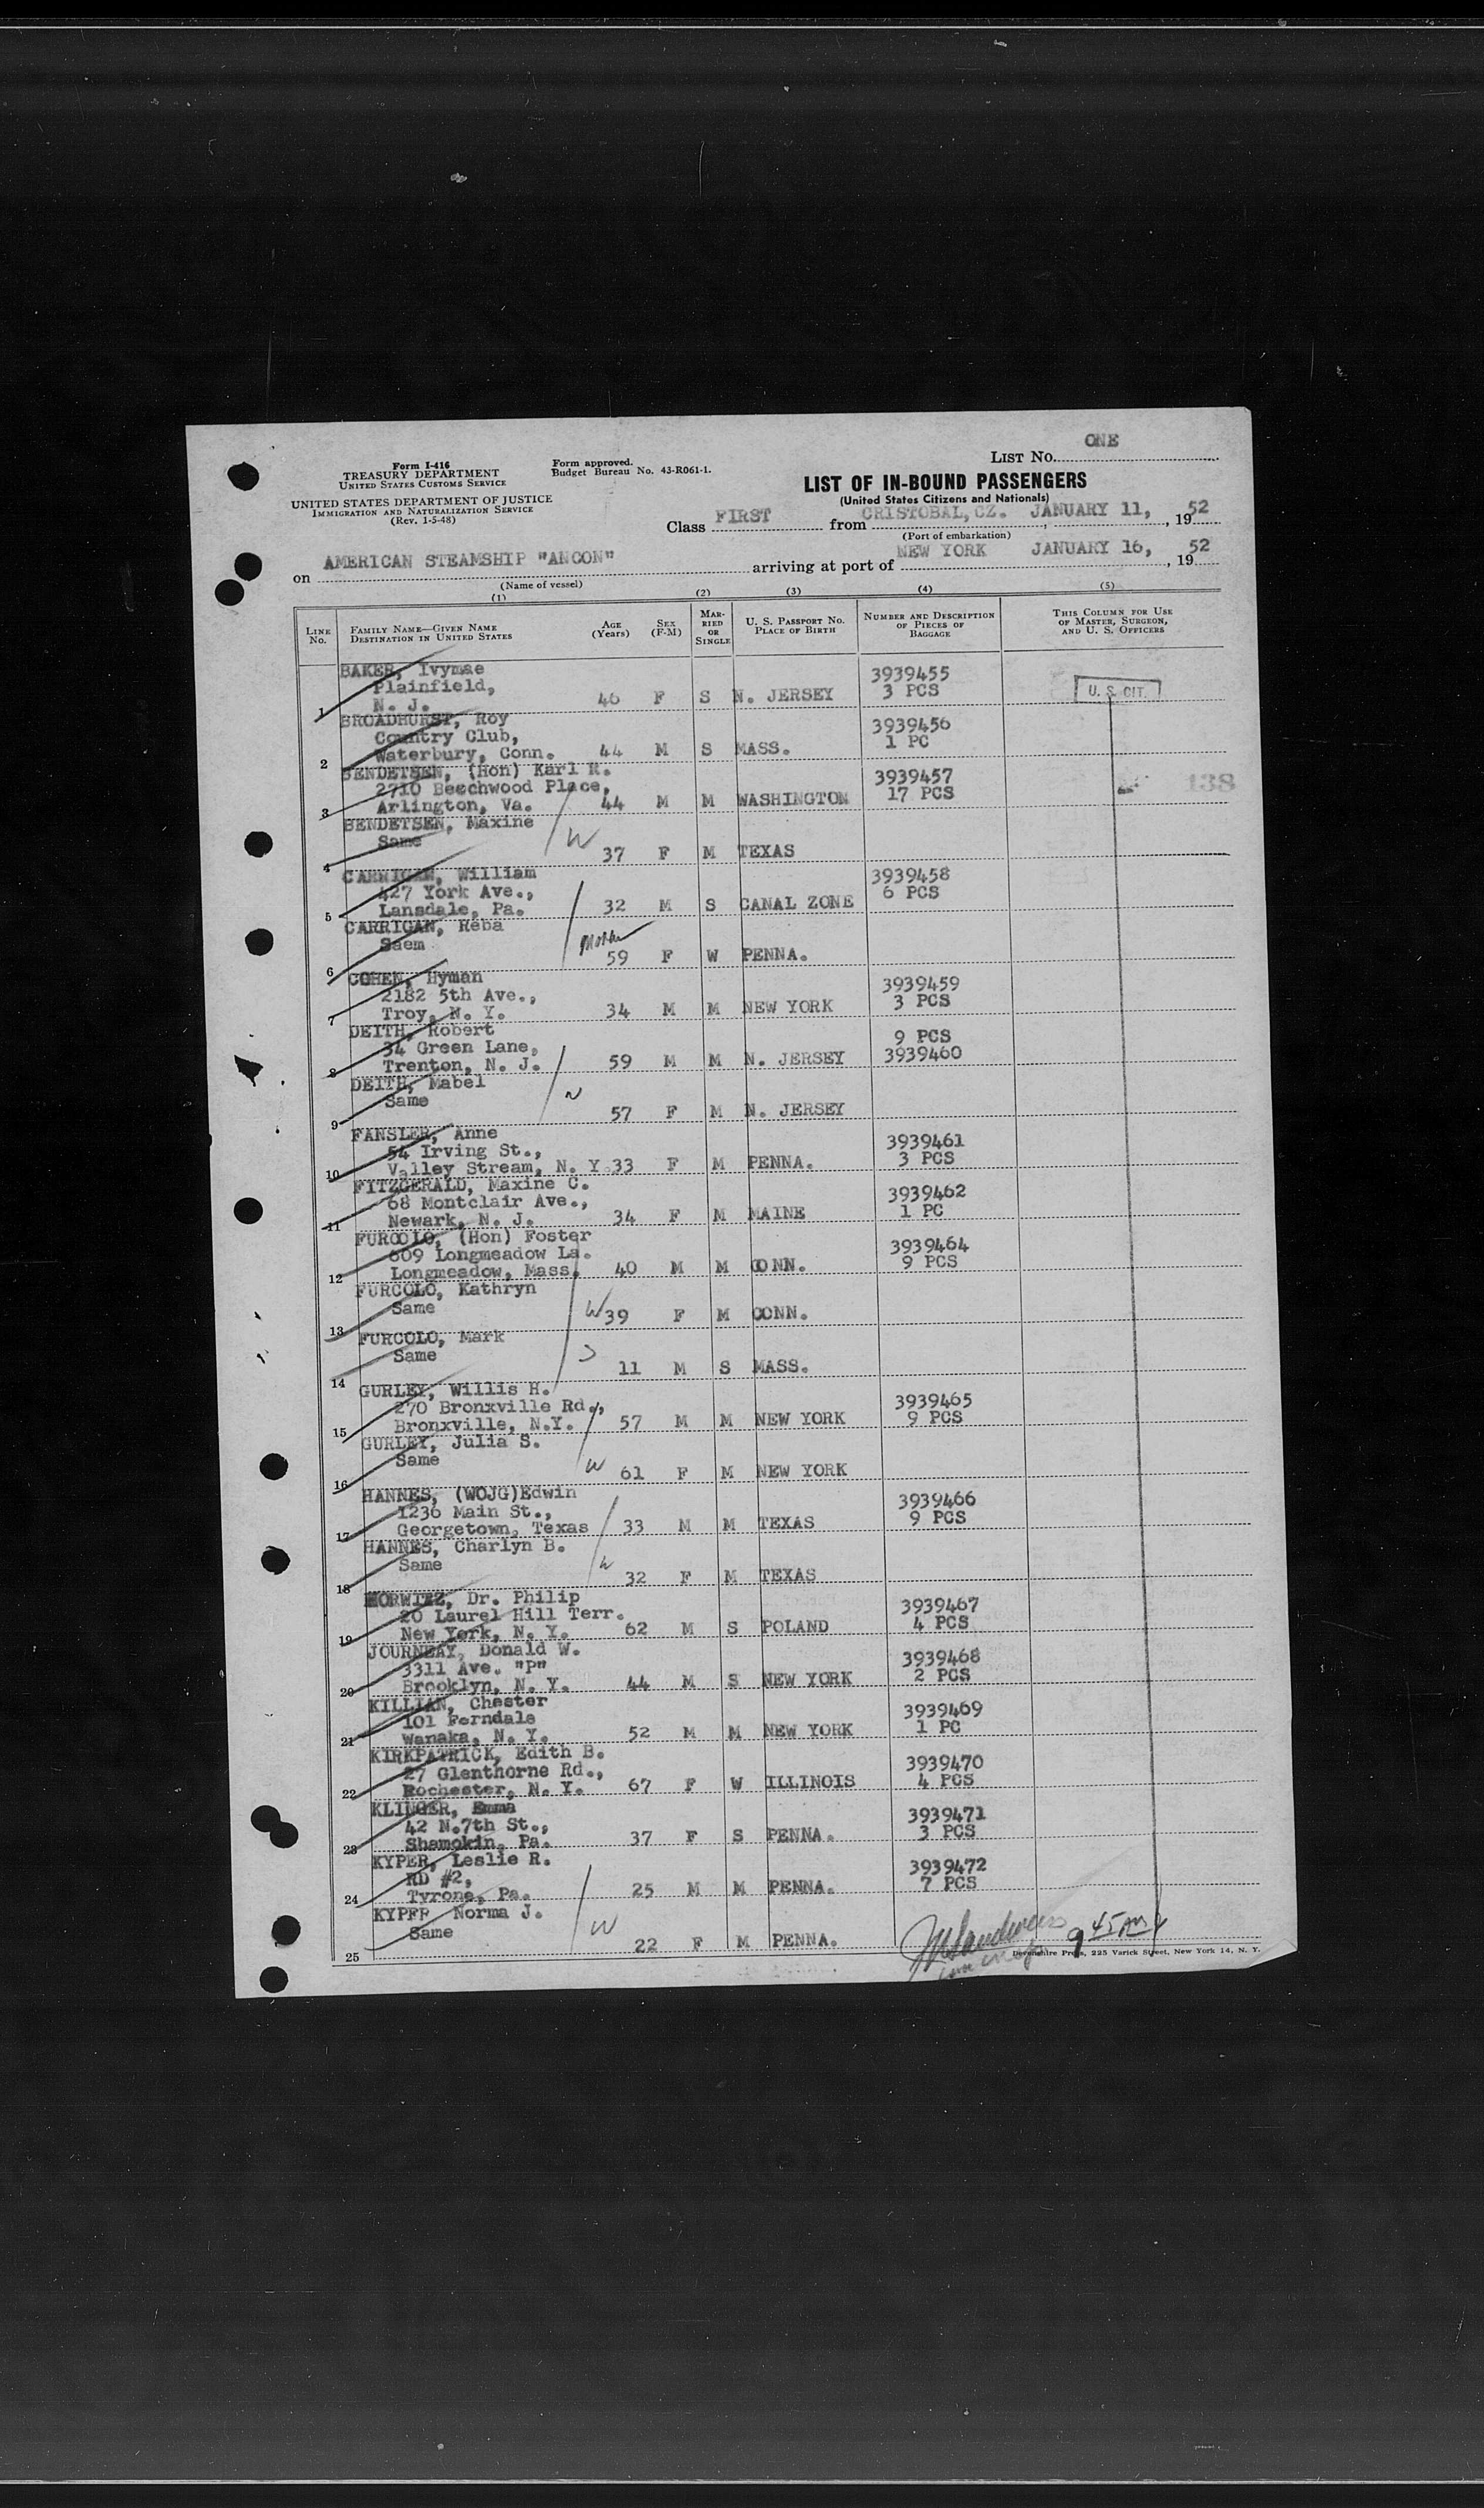 ONE
LIST No.
Form I-416
TREASURY DEPARTMENT
UNITED STATES CUSTOMS SERVICE
Form approved.
Budget Bureau No. 43-R061-1.
UNITED STATES DEPARTMENT OF JUSTICE
IMMIGRATION AND NATURALIZATION SERVICE
(Rev. 1-5-48)
LIST OF IN-BOUND PASSENGERS
(United States Citizens and Nationals)
Class FIRST from CRISTOBAL, CZ. JANUARY 11, , 1952
(Port of embarkation)
on AMERICAN STEAMSHIP "ANCON" arriving at port of NEW YORK JANUARY 16, , 1952
(Name of vessel)
(1) (2) (3) (4) (5)
LINE No. FAMILY NAME—GIVEN NAME DESTINATION IN UNITED STATES AGE (Years) SEX (F-M) MARRIED OR SINGLE U. S. PASSPORT No. PLACE OF BIRTH NUMBER AND DESCRIPTION OF PIECES OF BAGGAGE THIS COLUMN FOR USE OF MASTER, SURGEON, AND U. S. OFFICERS
BAKER, Ivymae 3939455
Plainfield, 3 PCS U. S. CIT.
1 N. J. 46 F S N. JERSEY
BROADHURST, Roy 3939456
Country Club, 1 PC
2 Waterbury, Conn. 44 M S MASS.
BENDETSEN, (Hon) Karl R. 3939457
2710 Beechwood Place, 17 PCS 138
3 Arlington, Va. 44 M M WASHINGTON
BENDETSEN, Maxine
Same W
4 37 F M TEXAS
CARRIGAN, William 3939458
427 York Ave., 6 PCS
5 Lansdale, Pa. 32 M S CANAL ZONE
CARRIGAN, Reba
Saem Mother
6 59 F W PENNA.
COHEN, Hyman 3939459
2182 5th Ave., 3 PCS
7 Troy, N. Y. 34 M M NEW YORK
DEITH, Robert 9 PCS
34 Green Lane, 3939460
8 Trenton, N. J. 59 M M N. JERSEY
DEITH, Mabel
Same W
9 57 F M N. JERSEY
FANSLER, Anne 3939461
54 Irving St., 3 PCS
10 Valley Stream, N. Y. 33 F M PENNA.
FITZGERALD, Maxine C. 3939462
68 Montclair Ave., 1 PC
11 Newark, N. J. 34 F M MAINE
FURCOLO, (Hon) Foster 3939464
609 Longmeadow La. 9 PCS
12 Longmeadow, Mass. 40 M M CONN.
FURCOLO, Kathryn
Same W
13 39 F M CONN.
FURCOLO, Mark
Same S
14 11 M S MASS.
GURLEY, Willis H. 3939465
270 Bronxville Rd., 9 PCS
15 Bronxville, N.Y. 57 M M NEW YORK
GURLEY, Julia S.
Same W
16 61 F M NEW YORK
HANNES, (WOJG)Edwin 3939466
1236 Main St., 9 PCS
17 Georgetown, Texas 33 M M TEXAS
HANNES, Charlyn B.
Same W
18 32 F M TEXAS
HORWITZ, Dr. Philip 3939467
20 Laurel Hill Terr. 4 PCS
19 New York, N. Y. 62 M S POLAND
JOURNEAY, Donald W. 3939468
3311 Ave. "P" 2 PCS
20 Brooklyn, N. Y. 44 M S NEW YORK
KILLIAN, Chester 3939469
101 Ferndale 1 PC
21 Wanaka, N. Y. 52 M M NEW YORK
KIRKPATRICK, Edith B. 3939470
27 Glenthorne Rd., 4 PCS
22 Rochester, N. Y. 67 F W ILLINOIS
KLINGER, Emma 3939471
42 N.7th St., 3 PCS
23 Shamokin, Pa. 37 F S PENNA.
KYPER, Leslie R. 3939472
RD #2, 7 PCS
24 Tyrone, Pa. 25 M M PENNA.
KYPER Norma J.
Same W
25 22 F M PENNA.
9 45 AM
Devonshire Press, 225 Varick Street, New York 14, N. Y.